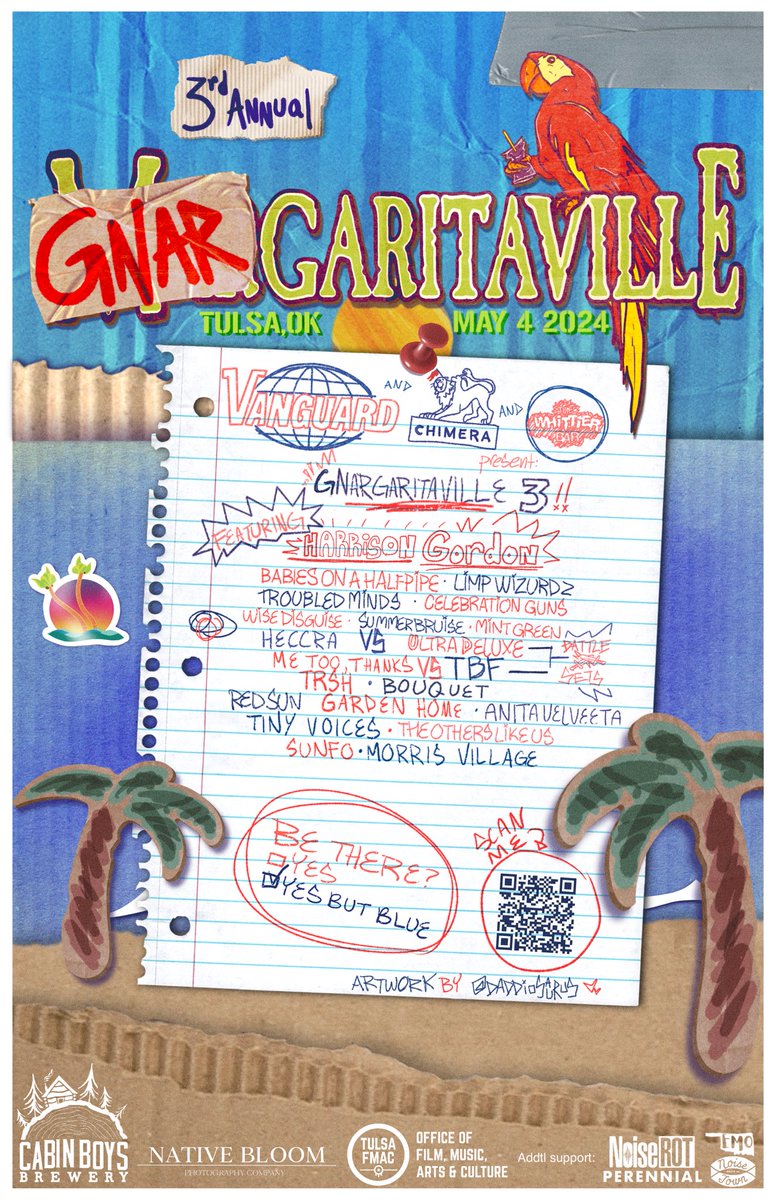 3rd ANNUAL
GNARGARITAVILLE
TULSA,OK
MAY 4 2024
VANGUARD AND CHIMERA AND WHITTIER BAR
present:
GNARGARITAVILLE 3!!
FEATURING
HARRISON GORDON
BABIES ON A HALFPIPE · LIMP WIZURDZ
TROUBLED MINDS · CELEBRATION GUNS
WISE DISGUISE · SUMMERBRUISE · MINT GREEN
HECCRA VS ULTRA DELUXE
ME TOO, THANKS VS TBF
BATTLE
SETS
TRSH · BOUQUET
RED SUN GARDEN HOME · ANITA VELVEETA
TINY VOICES · THEOTHERSLIKEUS
SUNFO · MORRIS VILLAGE
BE THERE?
YES
YES BUT BLUE
SCAN
ME?
ARTWORK BY @DADDIOSAURUS
CABIN BOYS
BREWERY
NATIVE BLOOM
PHOTOGRAPHY COMPANY
TULSA
FMAC
OFFICE OF
FILM, MUSIC,
ARTS & CULTURE
Addtl support:
NoiseROT
PERENNIAL
EMO
Noise
Town